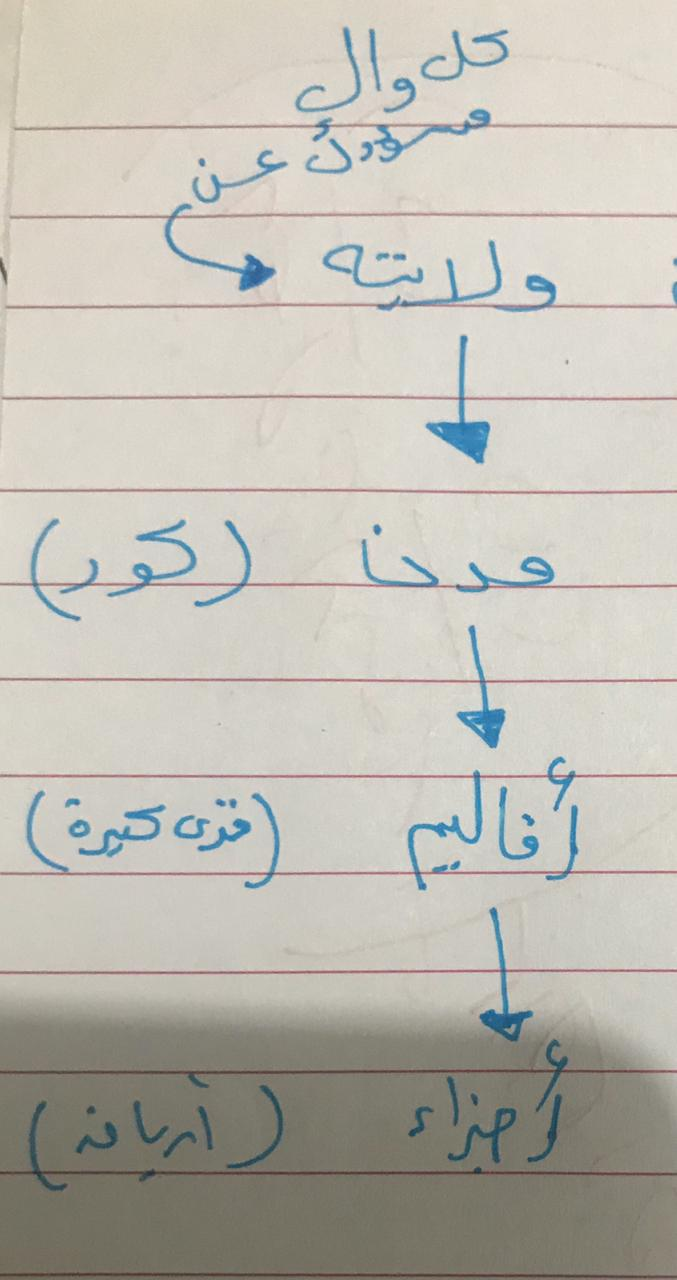 كل والٍ
مسؤولٌ عن
ولايته
مدنا (كور)
أقاليم (قرى كبيرة)
أجزاء (أرياف)